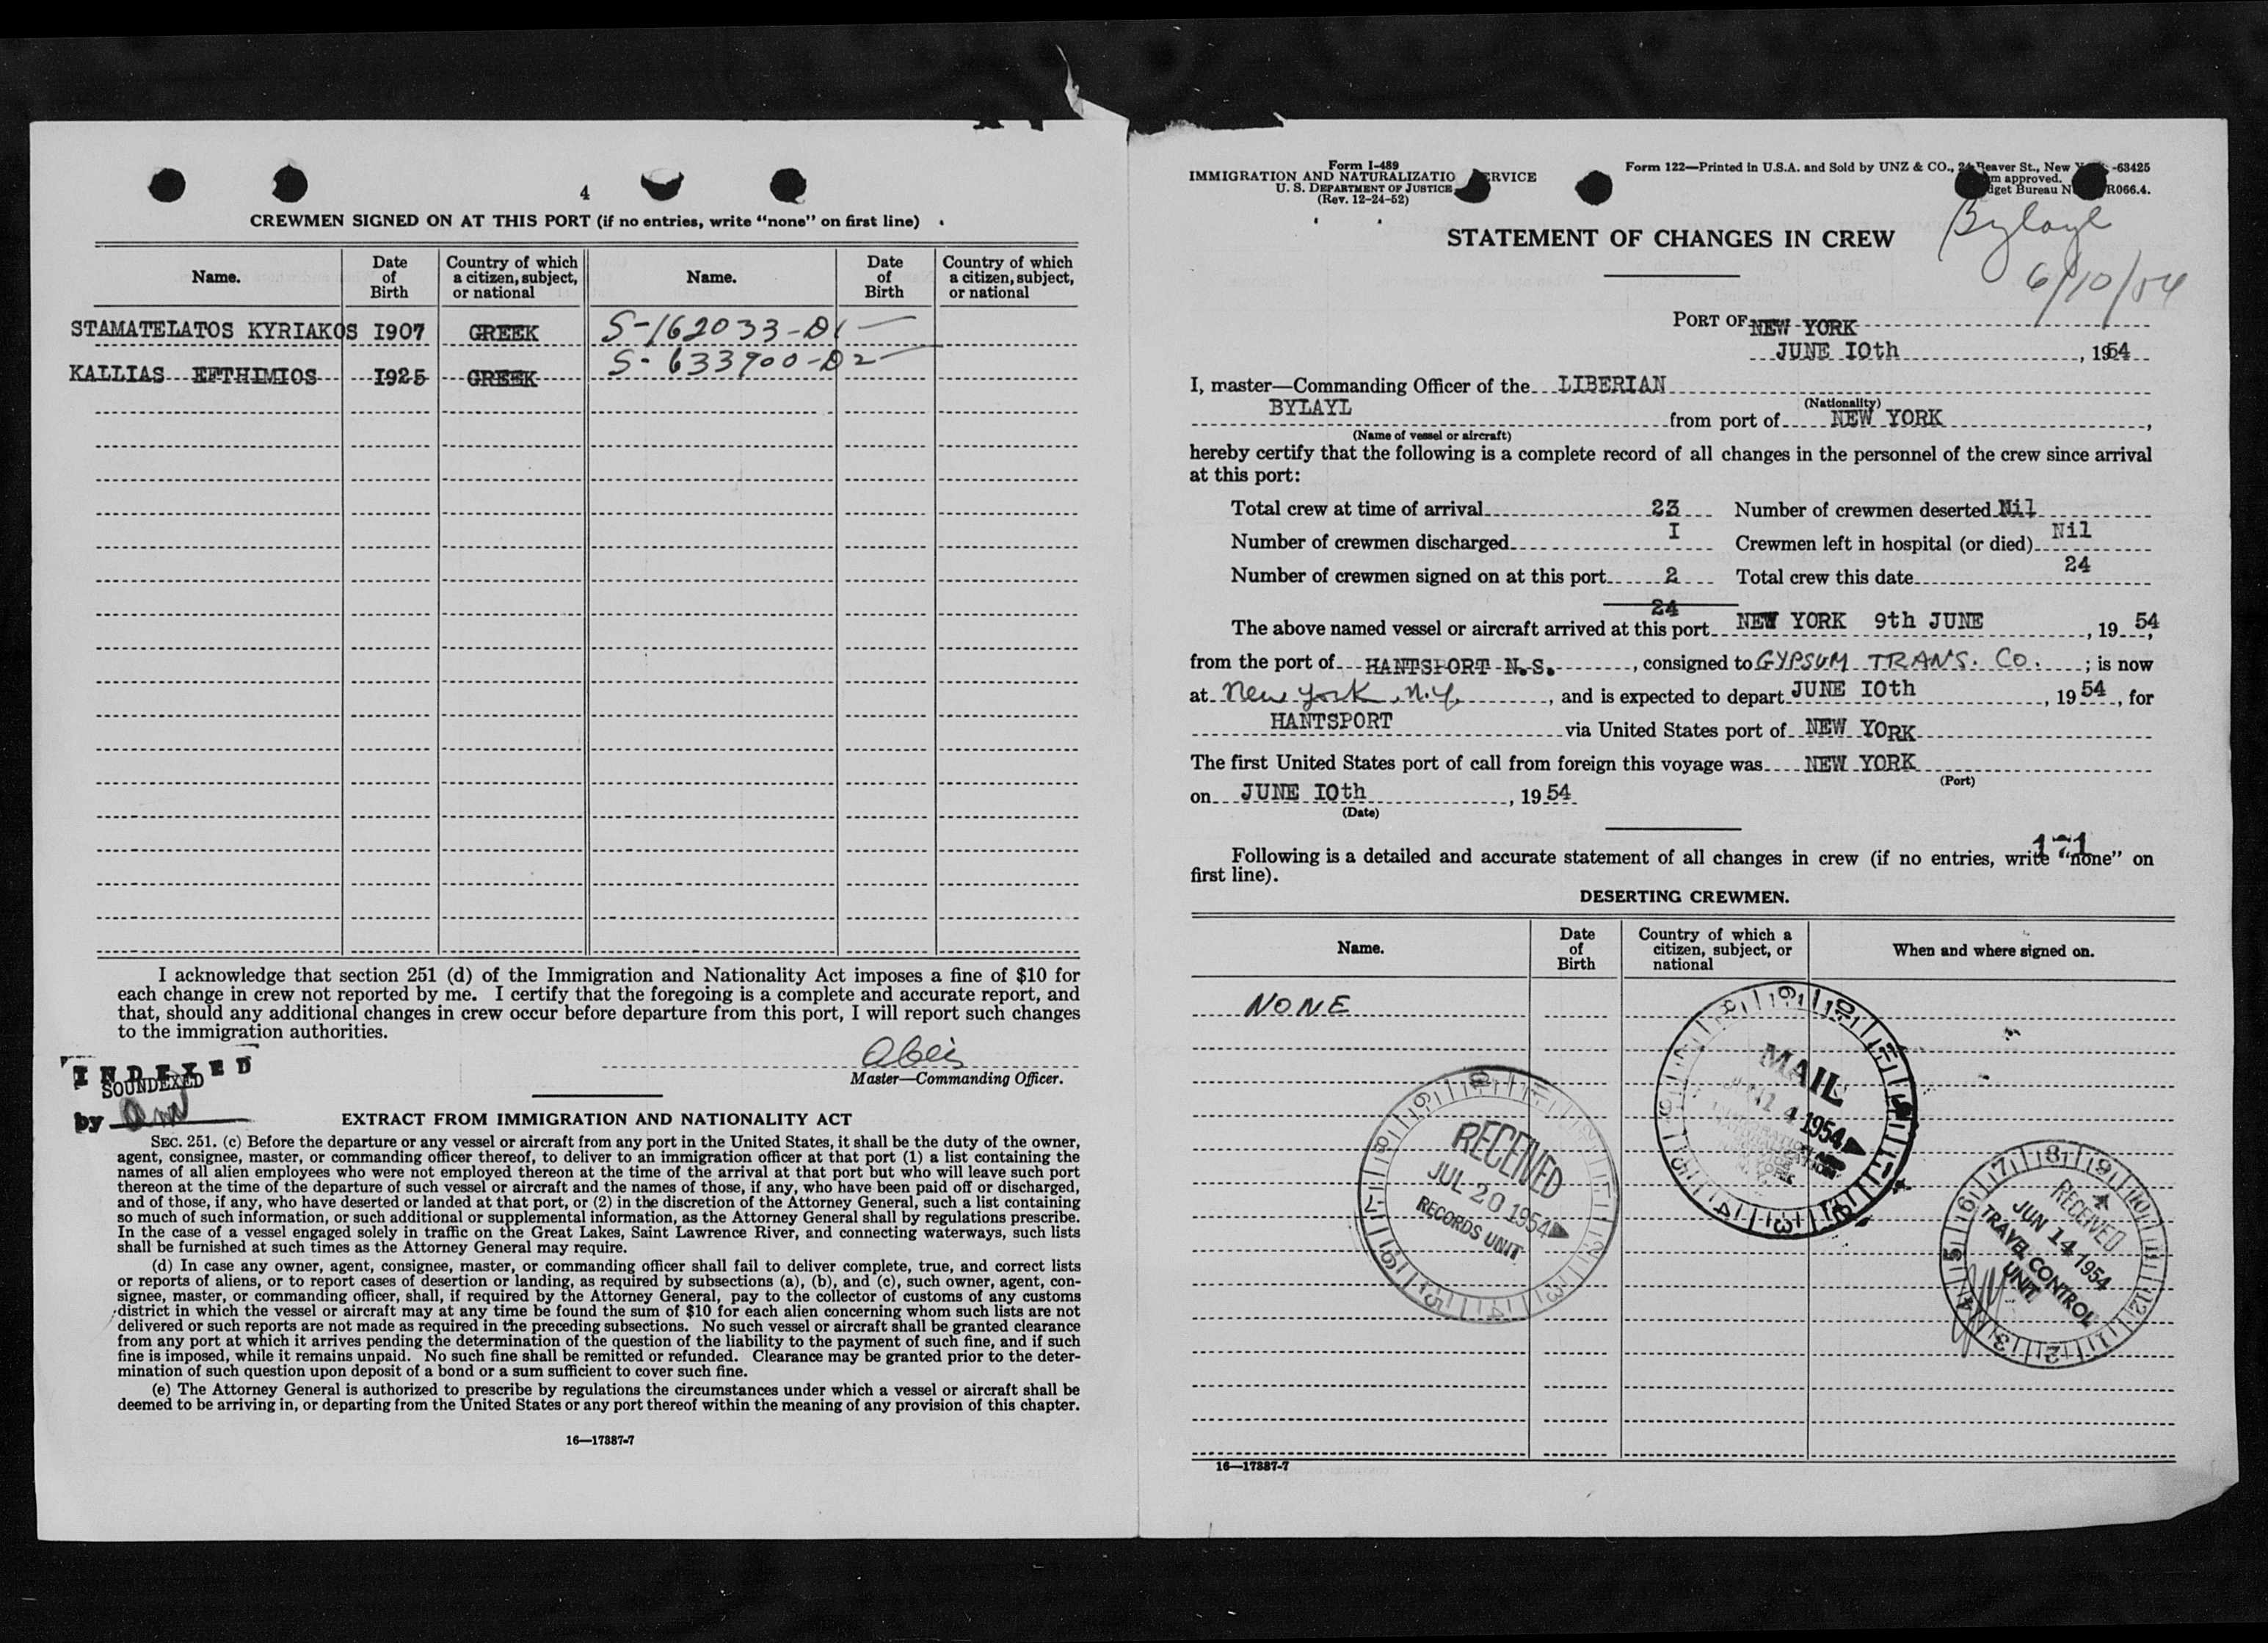 4
CREWMEN SIGNED ON AT THIS PORT (if no entries, write "none" on first line)
Name. Date of Birth Country of which a citizen, subject, or national Name. Date of Birth Country of which a citizen, subject, or national
STAMATELATOS KYRIAKOS 1907 GREEK S-162033-D1
KALLIAS EFTHIMIOS 1925 GREEK S-633900-D2
I acknowledge that section 251 (d) of the Immigration and Nationality Act imposes a fine of $10 for
each change in crew not reported by me. I certify that the foregoing is a complete and accurate report, and
that, should any additional changes in crew occur before departure from this port, I will report such changes
to the immigration authorities.
Master—Commanding Officer.
INDEXED
SOUNDEXED
by
EXTRACT FROM IMMIGRATION AND NATIONALITY ACT
SEC. 251. (c) Before the departure or any vessel or aircraft from any port in the United States, it shall be the duty of the owner,
agent, consignee, master, or commanding officer thereof, to deliver to an immigration officer at that port (1) a list containing the
names of all alien employees who were not employed thereon at the time of the arrival at that port but who will leave such port
thereon at the time of the departure of such vessel or aircraft and the names of those, if any, who have been paid off or discharged,
and of those, if any, who have deserted or landed at that port, or (2) in the discretion of the Attorney General, such a list containing
so much of such information, or such additional or supplemental information, as the Attorney General shall by regulations prescribe.
In the case of a vessel engaged solely in traffic on the Great Lakes, Saint Lawrence River, and connecting waterways, such lists
shall be furnished at such times as the Attorney General may require.
(d) In case any owner, agent, consignee, master, or commanding officer shall fail to deliver complete, true, and correct lists
or reports of aliens, or to report cases of desertion or landing, as required by subsections (a), (b), and (c), such owner, agent, con-
signee, master, or commanding officer, shall, if required by the Attorney General, pay to the collector of customs of any customs
district in which the vessel or aircraft may at any time be found the sum of $10 for each alien concerning whom such lists are not
delivered or such reports are not made as required in the preceding subsections. No such vessel or aircraft shall be granted clearance
from any port at which it arrives pending the determination of the question of the liability to the payment of such fine, and if such
fine is imposed, while it remains unpaid. No such fine shall be remitted or refunded. Clearance may be granted prior to the deter-
mination of such question upon deposit of a bond or a sum sufficient to cover such fine.
(e) The Attorney General is authorized to prescribe by regulations the circumstances under which a vessel or aircraft shall be
deemed to be arriving in, or departing from the United States or any port thereof within the meaning of any provision of this chapter.
16—17887-7
Form I-489
IMMIGRATION AND NATURALIZATIO ERVICE
U. S. DEPARTMENT OF JUSTICE
(Rev. 12-24-52)
Form 122—Printed in U.S.A. and Sold by UNZ & CO., 24 Beaver St., New Y -63425
m approved.
dget Bureau N R066.4.
Bylayl
6/10/54
STATEMENT OF CHANGES IN CREW
PORT OF NEW YORK
JUNE IOth, 1954
I, master—Commanding Officer of the LIBERIAN
(Nationality)
BYLAYL from port of NEW YORK,
(Name of vessel or aircraft)
hereby certify that the following is a complete record of all changes in the personnel of the crew since arrival
at this port:
Total crew at time of arrival 23 Number of crewmen deserted Nil
Number of crewmen discharged I Crewmen left in hospital (or died) Nil
Number of crewmen signed on at this port 2 Total crew this date 24
24
The above named vessel or aircraft arrived at this port NEW YORK 9th JUNE, 1954,
from the port of HANTSPORT N.S., consigned to GYPSUM TRANS. CO.; is now
at New York, N.Y., and is expected to depart JUNE IOth, 1954, for
HANTSPORT via United States port of NEW YORK
The first United States port of call from foreign this voyage was NEW YORK
(Port)
on JUNE IOth, 1954
(Date)
171
Following is a detailed and accurate statement of all changes in crew (if no entries, write "none" on
first line).
DESERTING CREWMEN.
Name. Date of Birth Country of which a citizen, subject, or national When and where signed on.
NONE
MAIL
JUN 14 1954
RECEIVED
JUL 20 1954
RECORDS UNIT
RECEIVED
JUN 14 1954
TRAVEL CONTROL
UNIT
16—17887-7